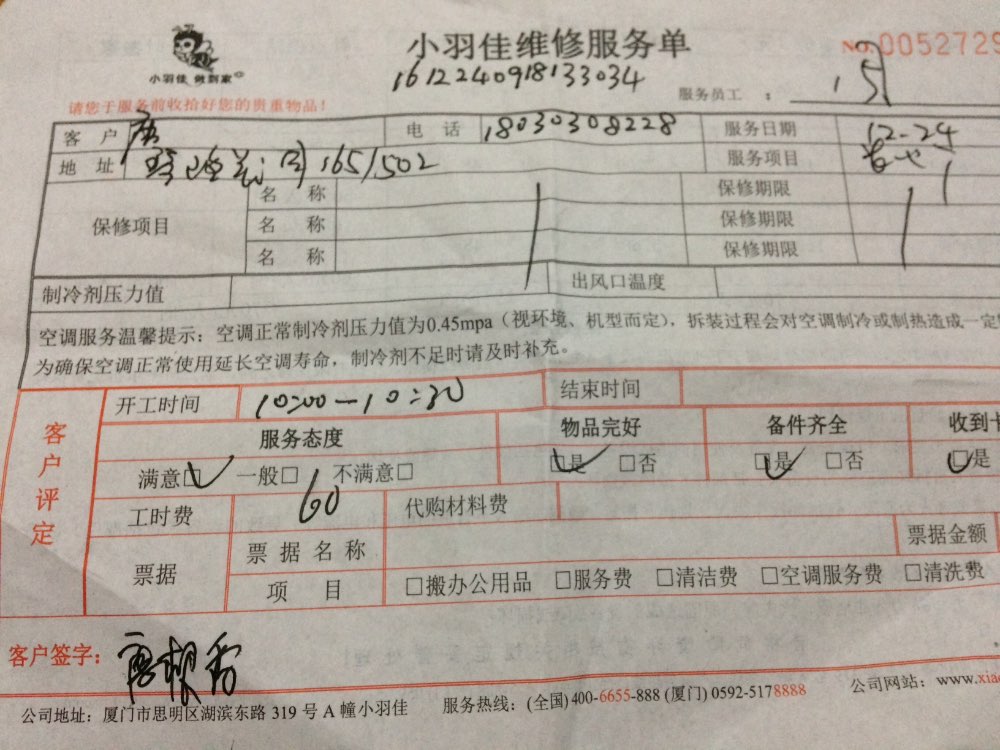 小羽佳维修服务单
小羽佳 做到家
No. 0052729
1612240918133034
请您于服务前收拾好您的贵重物品！
服务员工：
客户 唐 电话 18030308228 服务日期 12-24
地址 165/502 服务项目
保修项目 名称 保修期限
名称 保修期限
名称 保修期限
制冷剂压力值 出风口温度
空调服务温馨提示：空调正常制冷剂压力值为0.45mpa（视环境、机型而定），拆装过程会对空调制冷或制热造成一定
为确保空调正常使用延长空调寿命，制冷剂不足时请及时补充。
客户评定
开工时间 10:00-10:30 结束时间
服务态度 物品完好 备件齐全 收到
满意□ 一般□ 不满意□ □是 □否 □是 □否 □是
工时费 60 代购材料费
票据 票据名称 票据金额
项目 □搬办公用品 □服务费 □清洁费 □空调服务费 □清洗费
客户签字：
公司地址：厦门市思明区湖滨东路 319 号 A 幢小羽佳 服务热线：(全国) 400-6655-888 (厦门) 0592-5178888 公司网站：www.xia